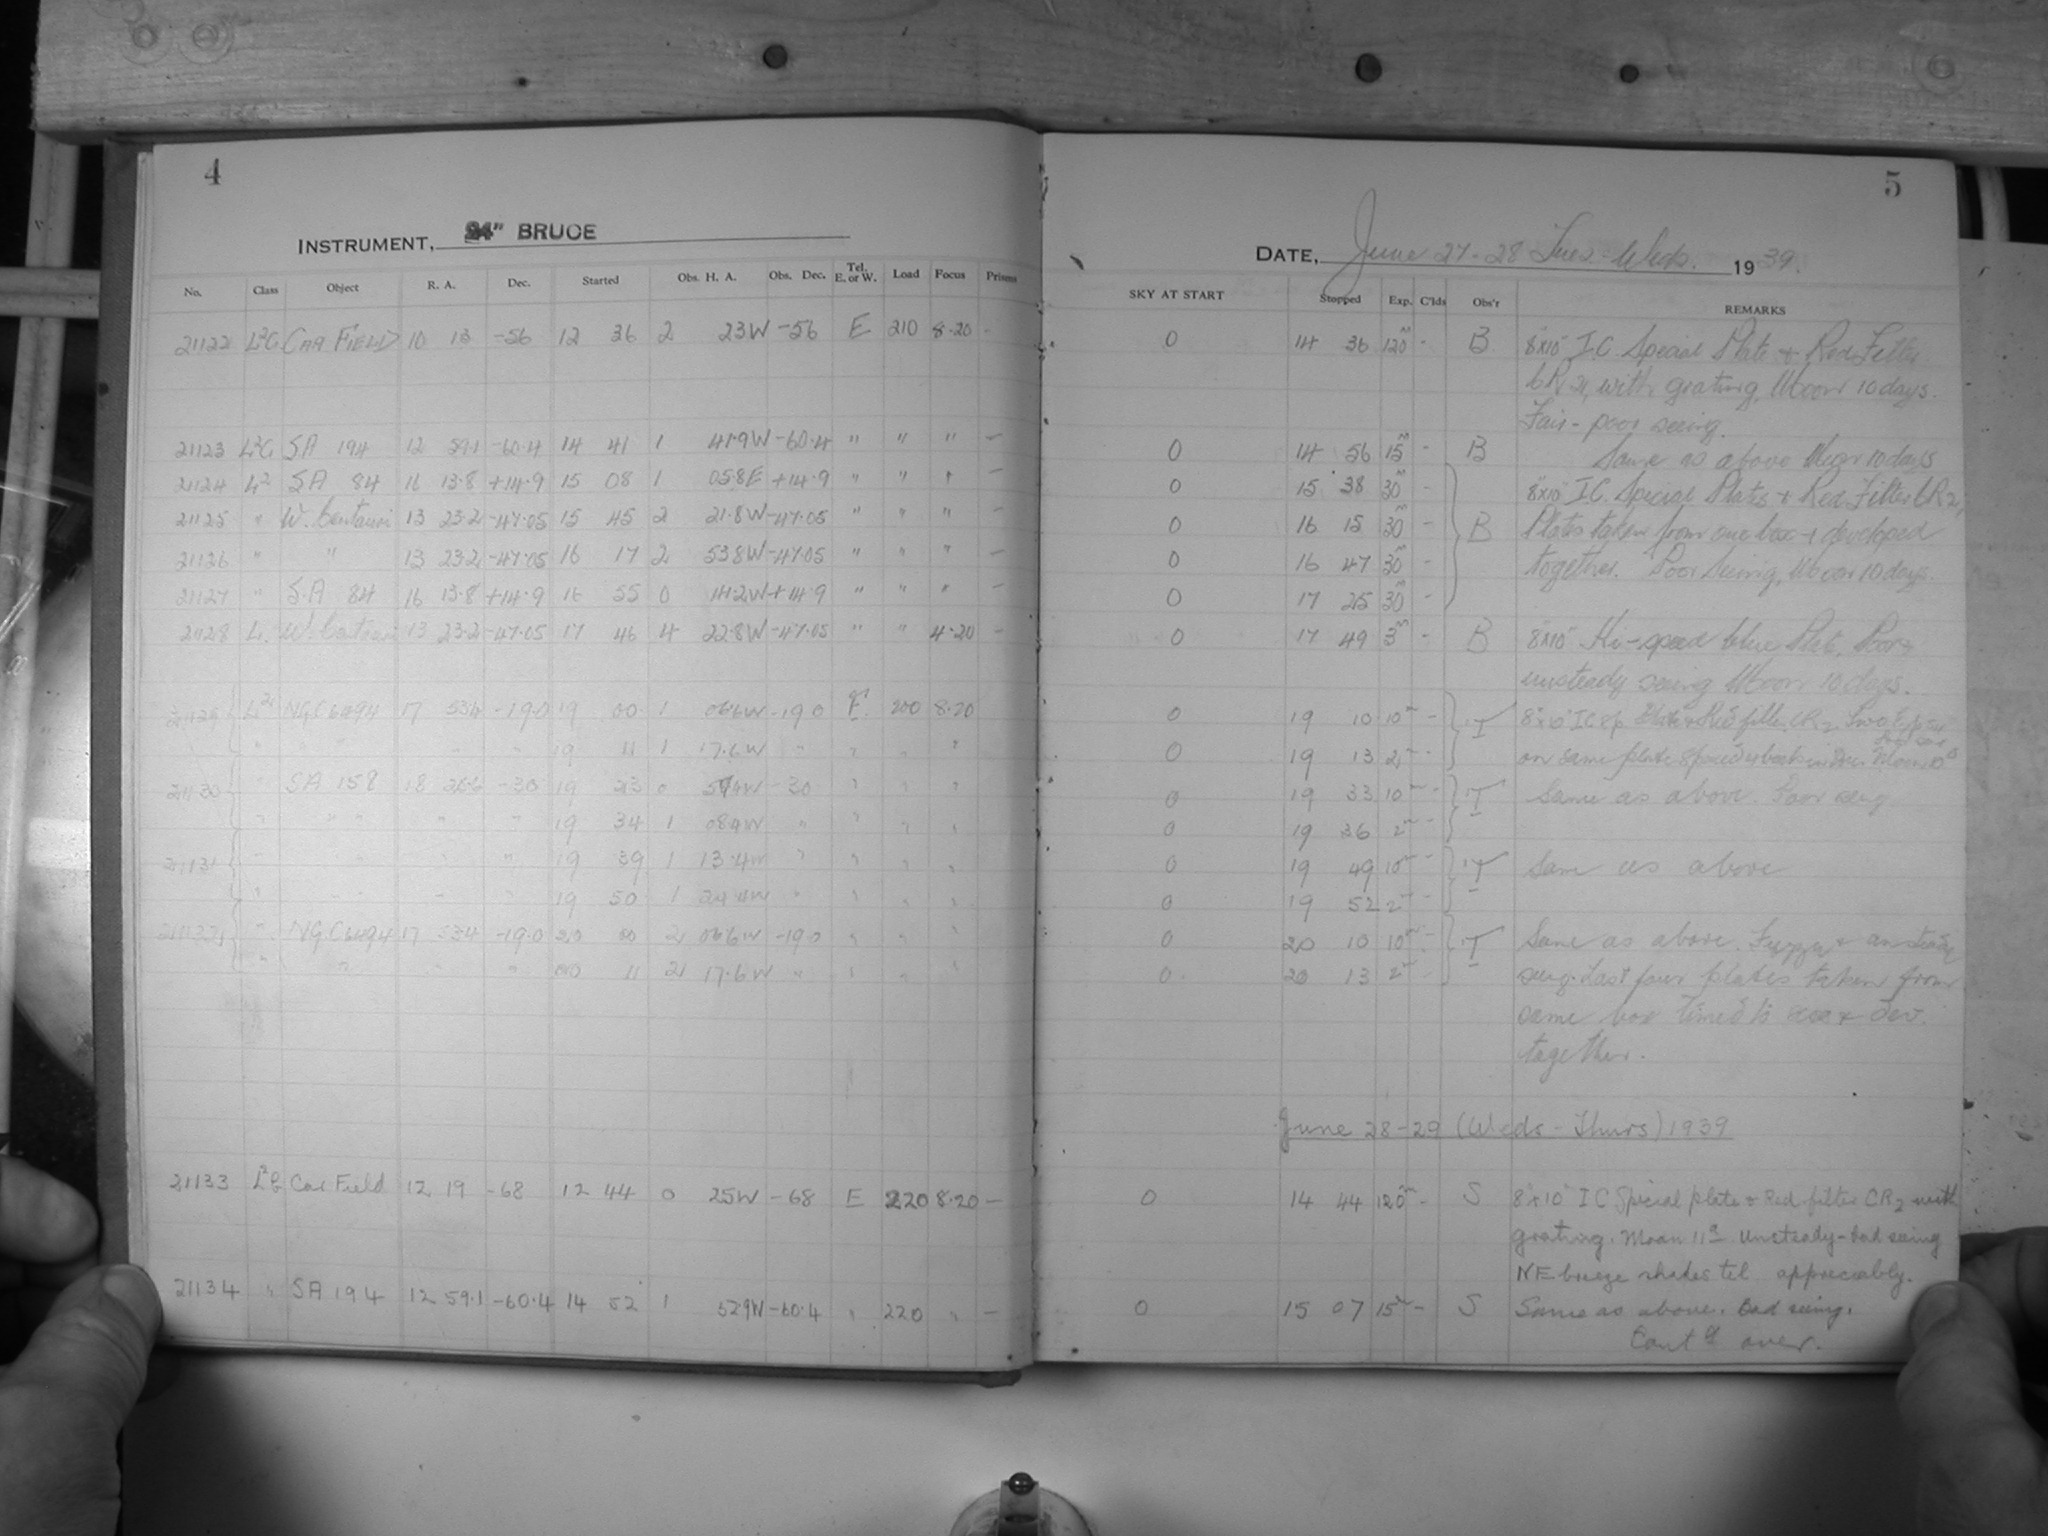 4
INSTRUMENT, 24" BRUCE
No. Class Object R. A. Dec. Started Obs. H. A. Obs. Dec. Tel. E. or W. Load Focus Prisms
21122 CAR FIELD 10 13 -56 12 36 2 23W -56 E 210 8.20 -
21123 SA 194 12 59.1 -60.4 14 41 1 41.9W -60.4 " " " -
21124 L2 SA 84 16 13.8 +14.9 15 08 1 05.8E +14.9 " " " -
21125 " W. Centauri 13 23.2 -47.05 15 45 2 21.8W -47.05 " " " -
21126 " " 13 23.2 -47.05 16 17 2 53.8W -47.05 " " " -
21127 " SA 84 16 13.8 +14.9 16 55 0 41.2W +14.9 " " " -
21128 L. W. Centauri 13 23.2 -47.05 17 46 4 22.8W -47.05 " " 4.20 -
21129 L2 NGC 6494 17 53.4 -19.0 19 00 1 06.6W -19.0 E 200 8.20
" " " " " 19 11 1 17.6W " " " "
21130 " SA 158 18 -30 19 23 0 -30 " " "
" " " " " 19 34 1 08.9W " " " "
21131 " " " " 19 39 1 13.4W " " " "
" " " " 19 50 1 24.4W " " " "
21132 " NGC 6494 17 53.4 -19.0 20 00 2 06.6W -19.0 " " "
" " " " 20 11 2 17.6W " " " "
21133 Car Field 12 19 -68 12 44 0 25W -68 E 220 8.20 -
21134 " SA 194 12 59.1 -60.4 14 52 1 52.9W -60.4 " 220 " -
5
DATE, June 27-28 Tues-Weds. 1939.
SKY AT START Stopped Exp. C'lds Obs'r REMARKS
0 14 36 120m - B 8"x10" I.C. Special Plate & Red Filter
CR2, with grating, Moon 10 days.
Fair-poor seeing.
0 14 56 15m - B Same as above Moon 10 days
0 15 38 30m - 8"x10" I.C. Special Plates & Red Filter CR2,
0 16 15 30m - B Plates taken from one box & developed
0 16 47 30m - together. Poor Seeing, Moon 10 days.
0 17 25 30 -
0 17 49 3m - B 8"x10" Hi-speed blue Plate. Poor &
unsteady seeing Moon 10 days.
0 19 10 10m - T 8"x10" IC sp. Plate & Red filter CR2. Two Exps
0 19 13 2m - on same plate
0 19 33 10m - T Same as above. Poor seeing
0 19 36 2m -
0 19 49 10m - T Same as above
0 19 52 2m -
0 20 10 10m - T Same as above. Fuzzy &
0 20 13 2m - seeing. Last four plates taken from
same box & dev.
together.
June 28-29 (Weds-Thurs) 1939
0 14 44 120m - S 8"x10" IC Special plate & Red filter CR2 with
grating. Moon 11d. Unsteady-bad seeing
NE breeze shakes tel appreciably.
0 15 07 15m - S Same as above. Bad seeing.
Cont'd over.